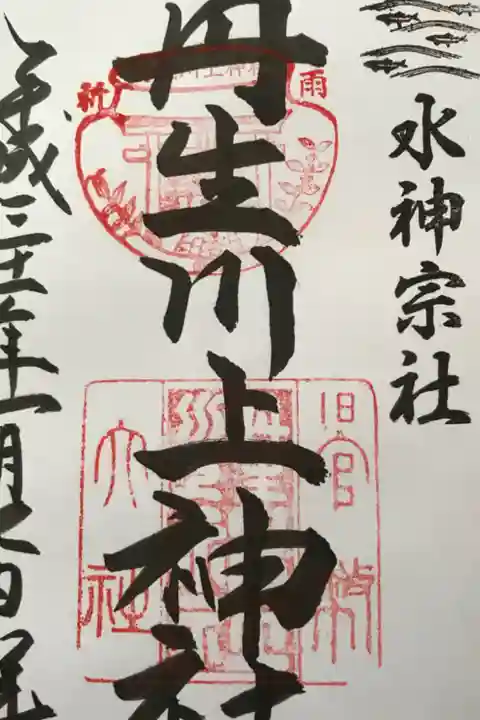 水神宗社
丹生川上神社
雨
祈
旧官幣
大社
平成三十
月七日